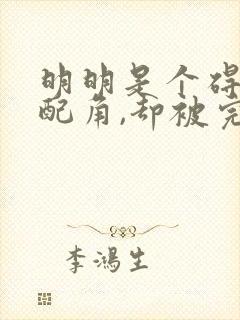 明明是个碍
配角,却被完
李鸿生